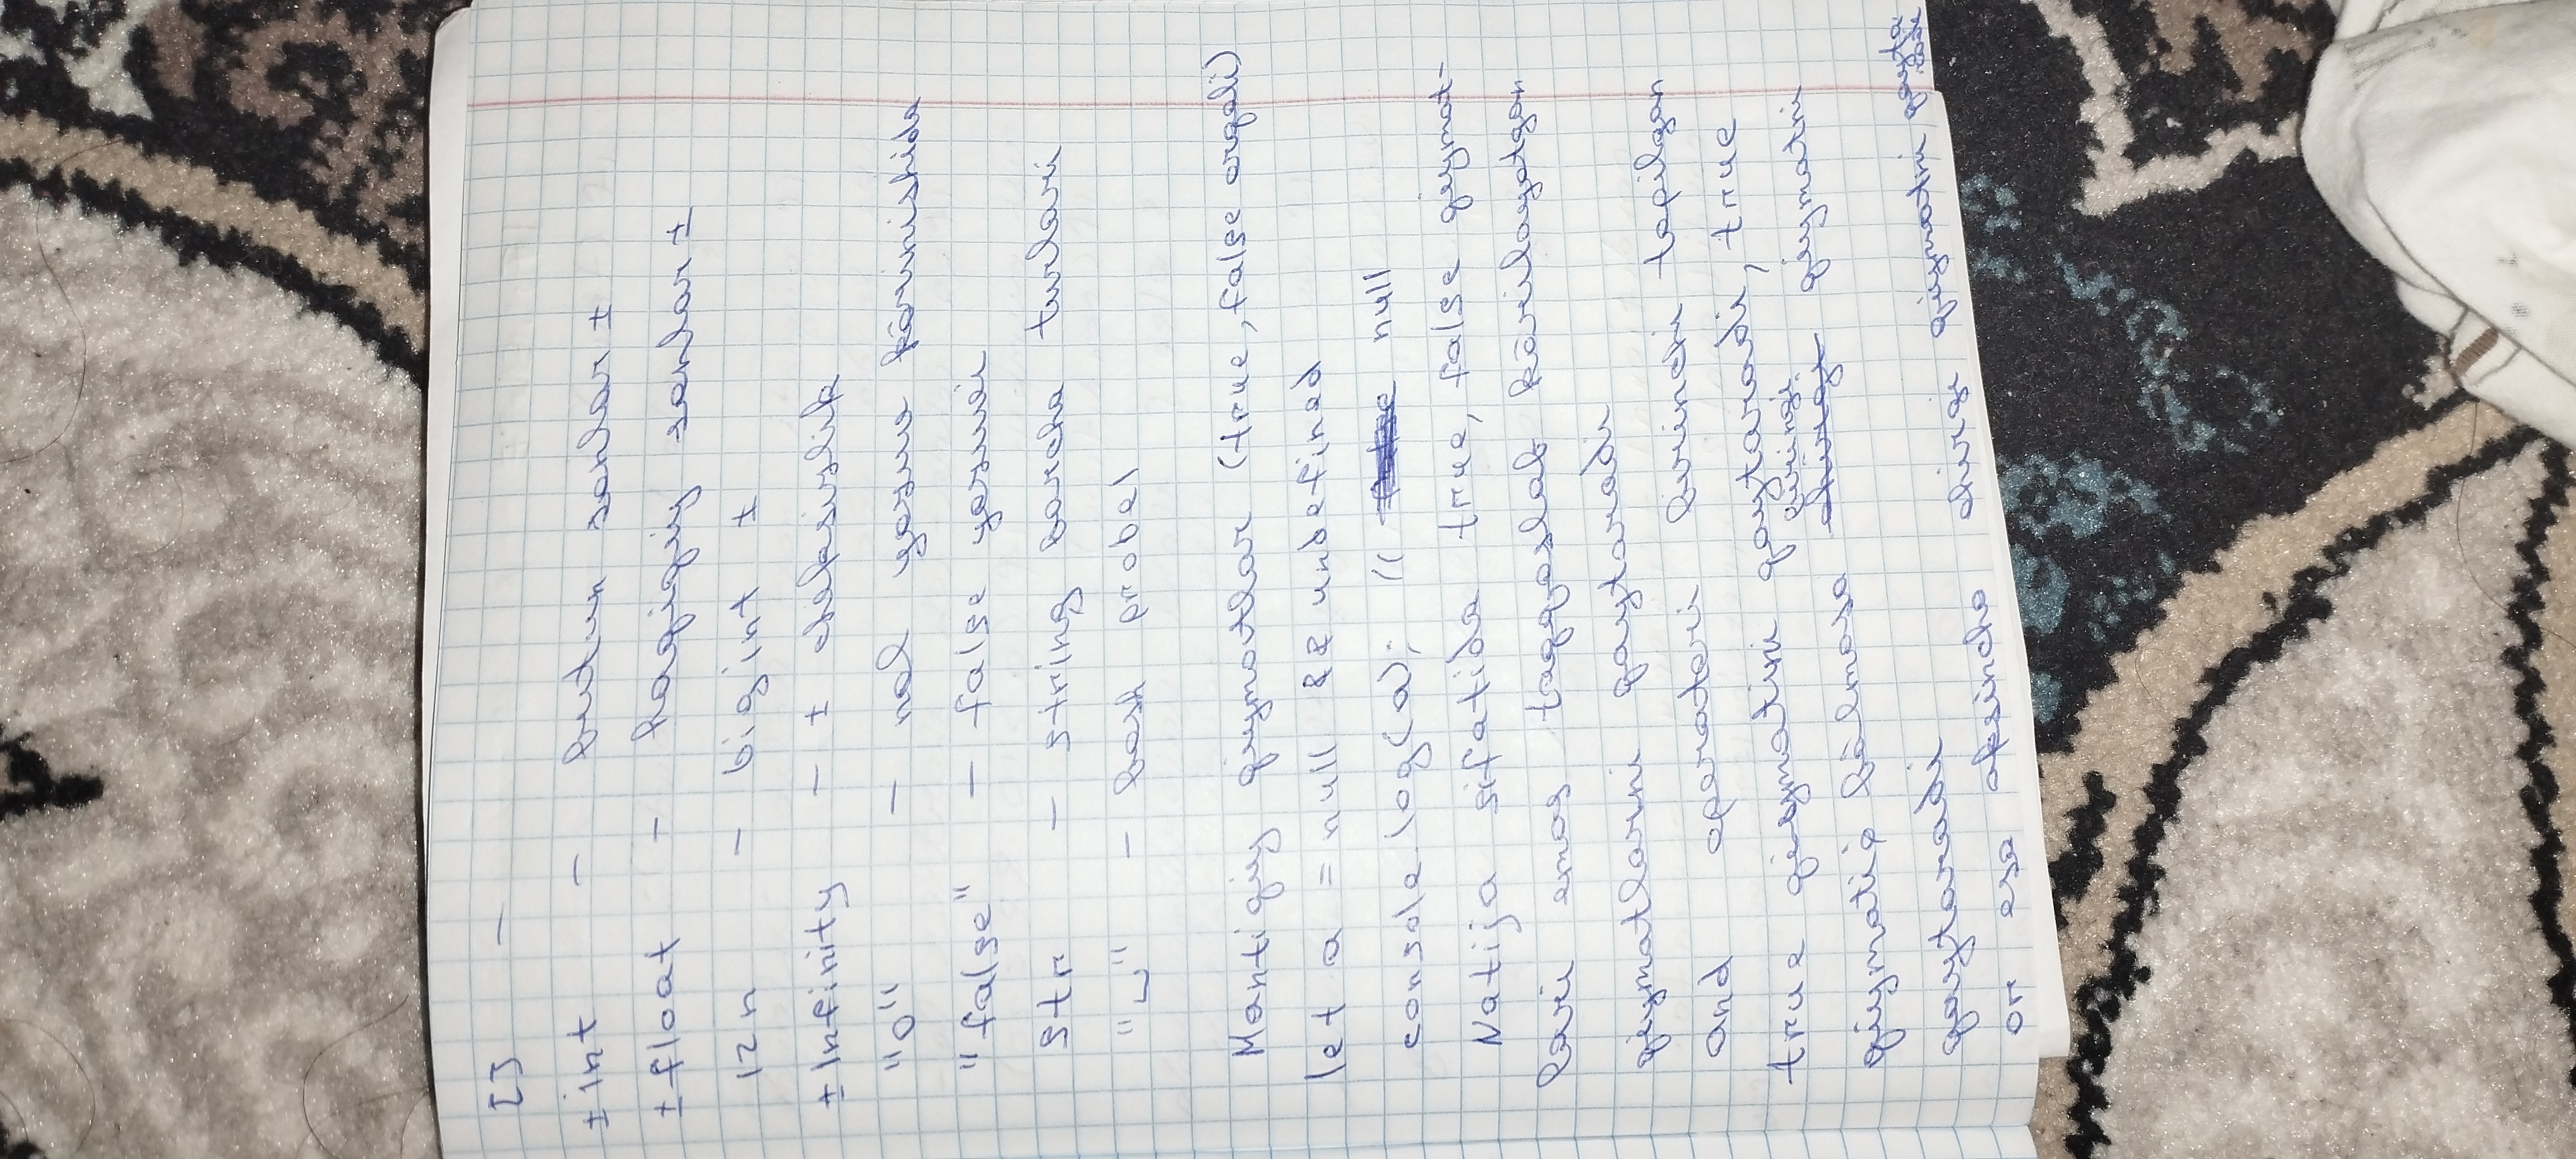 [] -
±int - butun sonlar ±
±float - haqiqiy sonlar ±
12n - bigint ±
±Infinity - ± cheksizlik
"0" - nol yozuv kōrinishida
"false" - false yozuvi
Str - string barcha turlari
"␣" - bosh probel
Mantiqiy qiymatlar (true, false orqali)
let a = null && undefined
console.log(a); // null
Natija sifatida true, false qiymat-
lari emas taqqoslab kōrilayotgan
qiymatlarni qaytaradi
and operatori birinchi topilgan
true qiymatini qaytaradi, true
qiymatiq bōlmasa oxirgi qiymatini
qaytaradi
or esa aksincha oxirgi qiymatini qayta
radi